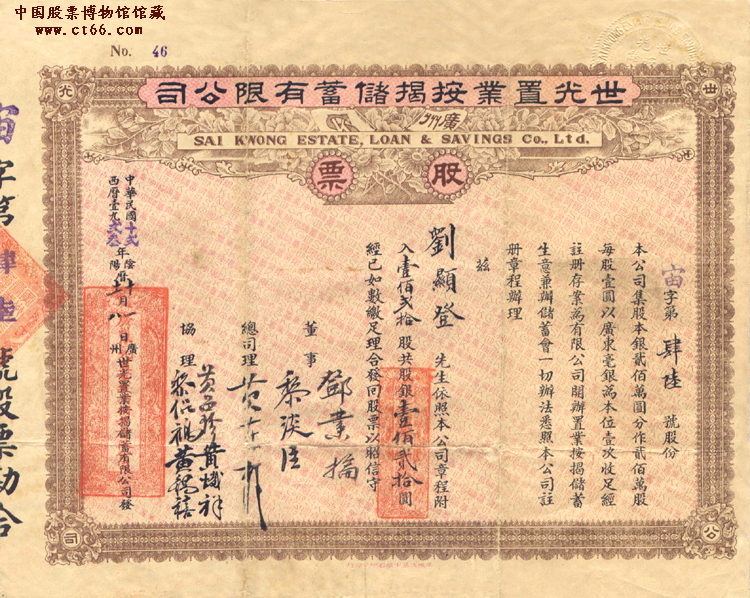 中国股票博物馆馆藏
www.ct66.com
No. 46
世光置業按揭儲蓄有限公司
廣州
SAI KWONG ESTATE, LOAN & SAVINGS Co., Ltd.
股票
宙字第肆陸號股份
本公司集股本銀貳佰萬圓分作貳佰萬股
每股壹圓以廣東毫銀為本位壹次收足經
註册存業為有限公司開辦置業按揭儲蓄
生意兼辦儲蓄會一切辦法悉照本公司註
册章程辦理
茲
劉顯登先生依照本公司章程附
入壹佰弍拾股共股銀壹佰弍拾圓
經已如數繳足理合發回股票以昭信守
董事
鄧業
黎
總司理
協理
黃
中華民國十弍年陰曆
西曆壹九弍叁年陽曆
月
日
廣州世光置業按揭儲蓄有限公司發
宙字第肆陸號股票勘合
世
光
公
司